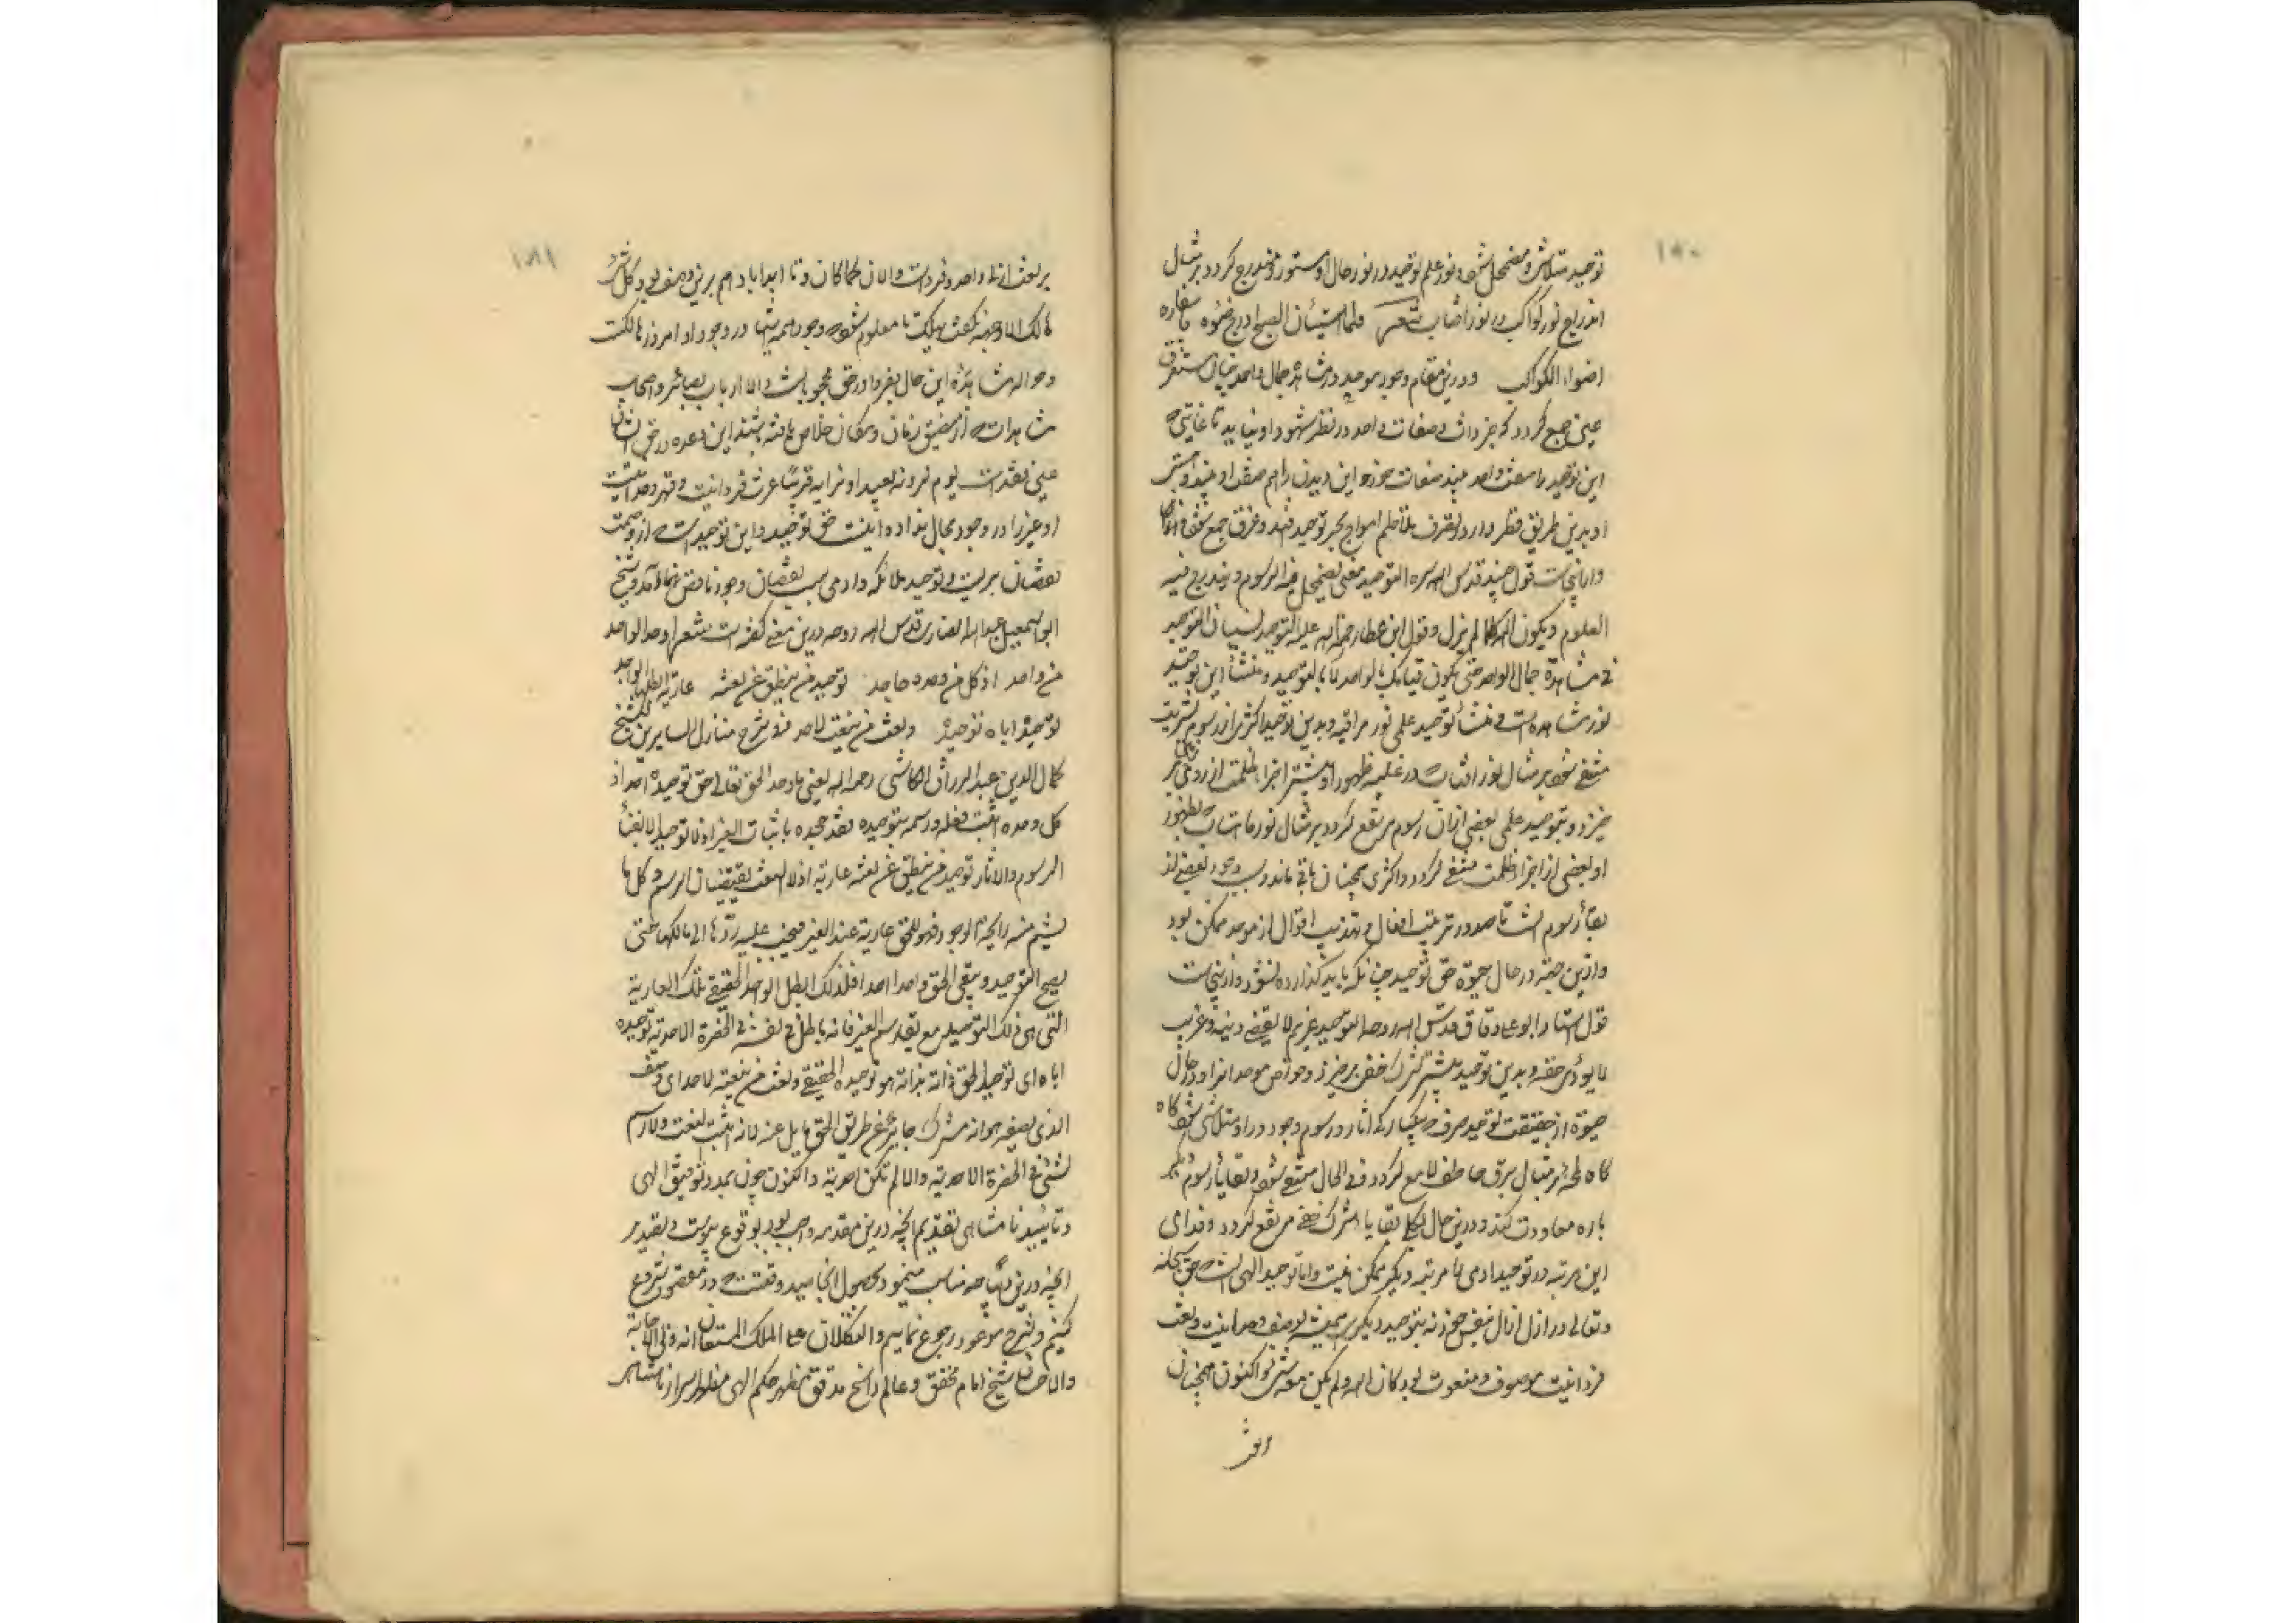 ١٨٠
توحید متلاشی و مضمحل شود و نور علم توحید در نور حال او مستور و مندرج گردد بر مثال
اندراج نور کواکب در نور افتاب شعر فلما استبان الصبح ادرج ضوءه باسفاره
اضواء الکواکب و درین مقام وجود موحد در مشاهده جمال واحد چنان مستغرق
عین جمع گردد که جز ذات و صفات واحد در نظر شهود او نیاید تا غایتی که
این توحید را صفت واحد بیند نه صفت خود و این دیدن را هم صفت او بیند و هستی
او بدین طریق قطره وار در تصرف تلاطم امواج بحر توحید افتد و غرق جمع شود
و ازینجاست قول جنید قدس الله سره التوحید معنی یضمحل فیه الرسوم و یندرج فیه
العلوم و یکون الله کما لم یزل و قول ابن عطا رحمة الله علیه التوحید نسیان التوحید
فی مشاهدة جمال الواحد حتی یکون قیامک بالواحد لا بالتوحید و منشأ این توحید
نور مشاهده است و منشأ توحید علمی نور مراقبه و بدین توحید اکثری از رسوم بشریت
منتفی شود بر مثال نور افتاب که در غلبه ظهور او بیشتر اجزاء ظلمت از روی زمین بر
خیزد و بتوحید علمی بعضی ازان رسوم مرتفع گردد بر مثال نور ماهتاب که بظهور
او بعضی از اجزاء ظلمت منتفی گردد و اکثری همچنان باقی ماند و سبب وجود بعضی از
بقایأ رسوم انست تا صدور ترتیب افعال و تهذیب اقوال از موحد ممکن بود
و ازین جهة در حال حیوة حق توحید چنانکه باید گذارده نشود و ازینجاست
قول استاد ابو علی دقاق قدس الله روحه التوحید غریم لا یقضی دینه و غریب
لا یؤدی حقه و بدین توحید بیشتر شرک خفی برخیزد و خواص موحدانرا در حال
حیوة از حقیقت توحید صرف که یکبارگی اثار و رسوم وجود در او متلاشی شود گاه
گاه لمحۀ بر مثال برق خاطف لامع گردد و فی الحال منتفی شود و بقایأ رسوم دیگر
باره معاودت کند و درین حال بکلی بقایا شرک خفی مرتفع گردد و ورای
این مرتبه در توحید ادمی را مرتبه دیگر ممکن نیست و اما توحید الهی انست که حق سبحانه
و تعالی در ازل ازال بنفس خود نه بتوحید دیگری همیشه بوصف وحدانیت و نعت
فردانیت موصوف و منعوت بود کان الله و لم یکن معه شیٔ و اکنون همچنان
بر نعت
١٨١
بر نعت ازلی واحد و فرد است و الان کما کان و تا ابد اباد هم برین وصف بود کل شیٔ
هالک الا وجهه نگفت یهلک تا معلوم شود که وجود همه شیٔها در وجود او امروز هالکست
و حواله مشاهدۀ این حال بفردا در حق محجوبانست و الا ارباب بصائر و اصحاب
مشاهدات که از مضیق زمان و مکان خلاص یافته باشند این وعده در حق ایشان
عین نقد است یوم یرونه بعیدا و نرایه قریبا عزت فردانیت و قهر وحدانیت
او غیر را در وجود مجال نداده اینست حق توحید و این توحیدست که از وصمت
نقصان بریست و توحید ملائکه و ادمی سبب نقصان وجود ناقص امد و شیخ
ابو اسمعیل عبد الله انصاری قدس الله روحه درین معنی گفته است شعر ما وحد الواحد
من واحد اذ کل من وحده جاحد توحید من ینطق عن نعته عاریة ابطلها الواحد
توحیده ایاه توحیده و نعت من ینعته لاحد فی شرح منازل السایرین للشیخ
کمال الدین عبد الرزاق الکاشی رحمه الله یعنی ما وحد الحق تعالی حق توحیده احد اذ
کل وحده اثبت فعله و رسمه بتوحیده فقد جحده باثبات الغیر اذ لا توحید الا بفنأ
الرسوم و الاثار توحید من ینطق عن نعته عاریة اذ لا نعت ... الرسم و کل ما
یشم منه رایحة الوجود فهو للحق عاریة عند الغیر فیجب علیه ردها الی مالکها حتی
یصح التوحید و یبقی الحق واحدا احدا فلذلک ابطل الواحد الحقیقی تلک العاریة
التی هی ذلک التوحید مع بقاء رسم الغیر فانه باطل فی نفسه فی الحضرة الاحدیة توحیده
ایاه ای توحید الحق ذاته بذاته هو توحیده الحقیقی و نعت من ینعته لاحد ای وصف
الذی یصفه هو انه مشرک جایر عن طریق الحق مایل عنه لانه اثبت النعت و لا رسم
لشیٔ فی الحضرة الاحدیة و الا لم تکن احدیة و اکنون چون بمدد توفیق الهی
و تایید نامتناهی تقدیم انچه درین مقدمه واجب بود بوقوع پیوست و تقدیر
انچه درین دیباچه مناسب مینمود بحصول انجامید وقتست که در مقصود شروع
کنیم و بشرح موعود رجوع نماییم و التکلان علی الملک المستعان انه ولی الاجابة
والاحسان شیخ امام محقق و عالم راسخ مدقق مظهر حکم الهی مظهر اسرار نامتناهی